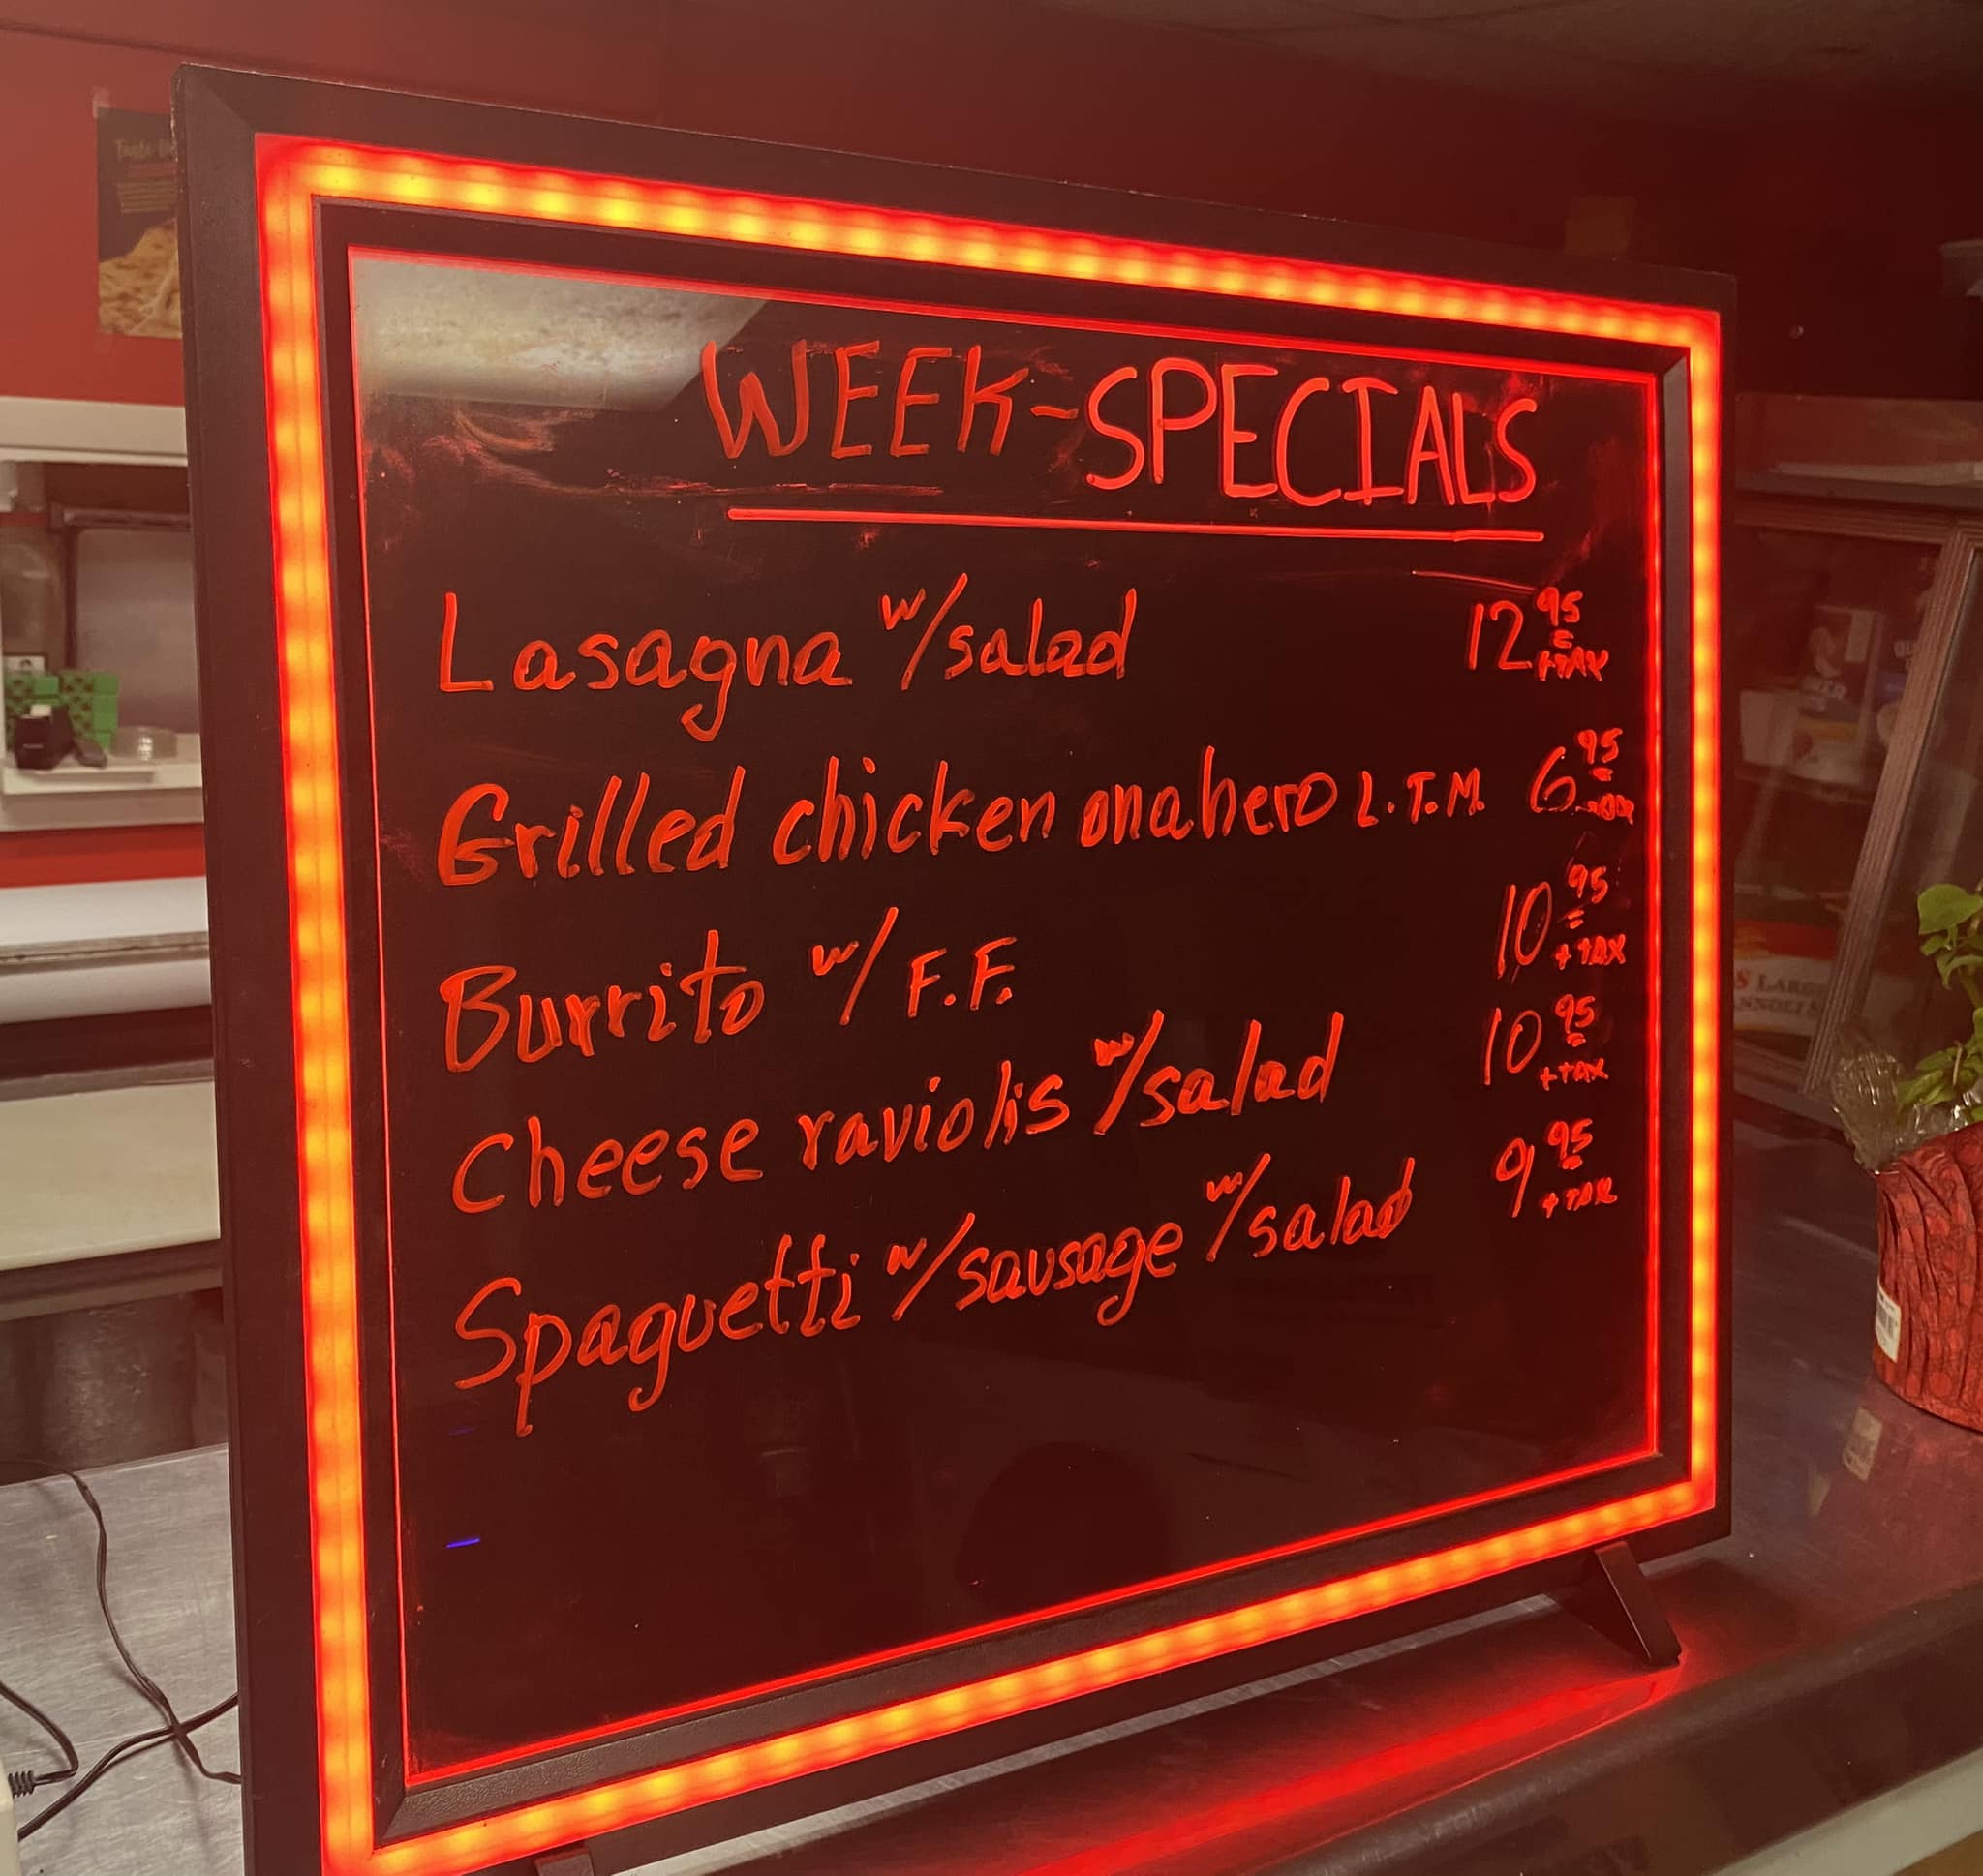 WEEK-SPECIALS
Lasagna w/salad 12 95 +TAX
Grilled chicken on a hero L.T.M. 6 95
Burrito w/ F.F. 10 95 +TAX
Cheese raviolis w/salad 10 95 +TAX
Spaguetti w/sausage w/salad 9 95 +TAX
Taste